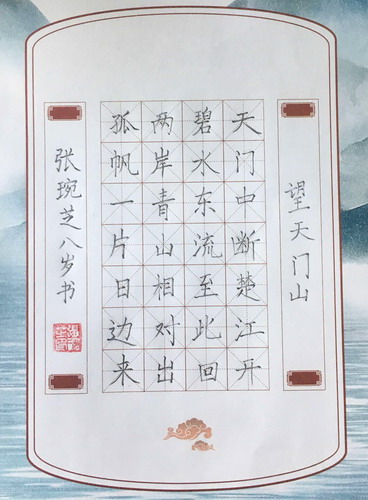 望天门山
天门中断楚江开
碧水东流至此回
两岸青山相对出
孤帆一片日边来
张琬芝八岁书